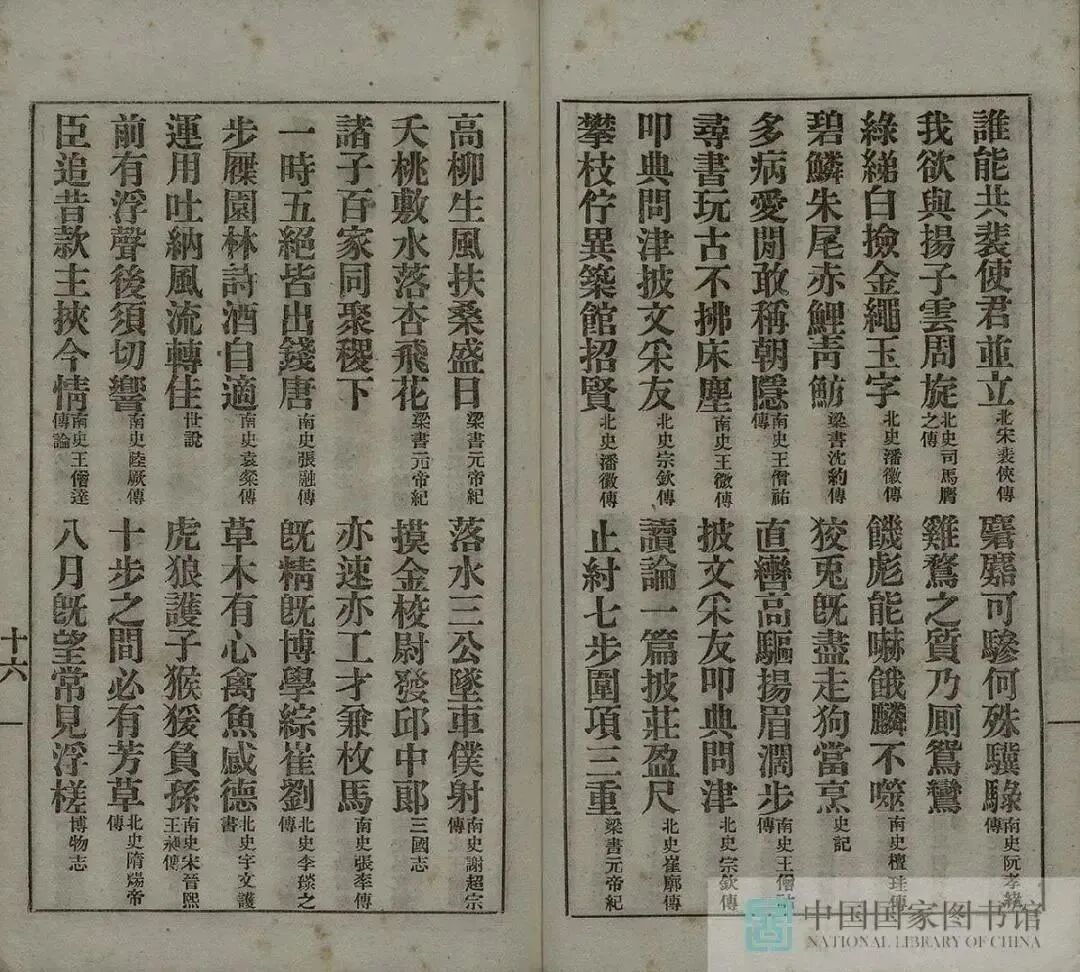 誰能共裴使君並立 北宋裴俠傳 麏麚可驂何殊驥騄 南史阮孝緒傳
我欲與揚子雲周旋 北史司馬膺之傳 雞鶩之質乃厠鴛鸞
綠綈白撿金繩玉字 北史潘徽傳 饑彪能嚇餓麟不噬 南史檀珪傳
碧鱗朱尾赤鯉靑魴 梁書沈約傳 狡兎旣盡走狗當烹 史記
多病愛閒敢稱朝隱 南史王僧祐傳 直轡高驅揚眉濶步 南史王僧祐傳
尋書玩古不拂床塵 南史王微傳 披文采友叩典問津 北史宗欽傳
叩典問津披文采友 北史宗欽傳 讀論一篇披莊盈尺 北史崔廓傳
攀枝佇異築館招賢 北史潘徽傳 止紂七步圍項三重 梁書元帝紀
高柳生風扶桑盛日 梁書元帝紀 落水三公墜車僕射 南史謝超宗傳
夭桃敷水落杏飛花 梁書元帝紀 摸金校尉發邱中郞 三國志
諸子百家同聚稷下 亦速亦工才兼枚馬 南史張率傳
一時五絕皆出錢唐 南史張融傳 旣精旣博學綜崔劉 北史李琰之傳
步屧園林詩酒自適 南史袁粲傳 草木有心禽魚感德 北史宇文護書
運用吐納風流轉佳 世說 虎狼護子猴猨負孫 南史宋晉熙王昶傳
前有浮聲後須切響 南史陸厥傳 十步之間必有芳草 北史隋煬帝傳
臣追昔款主挾今情 南史王僧達傳論 八月旣望常見浮槎 博物志
十六
中国国家图书馆
NATIONAL LIBRARY OF CHINA